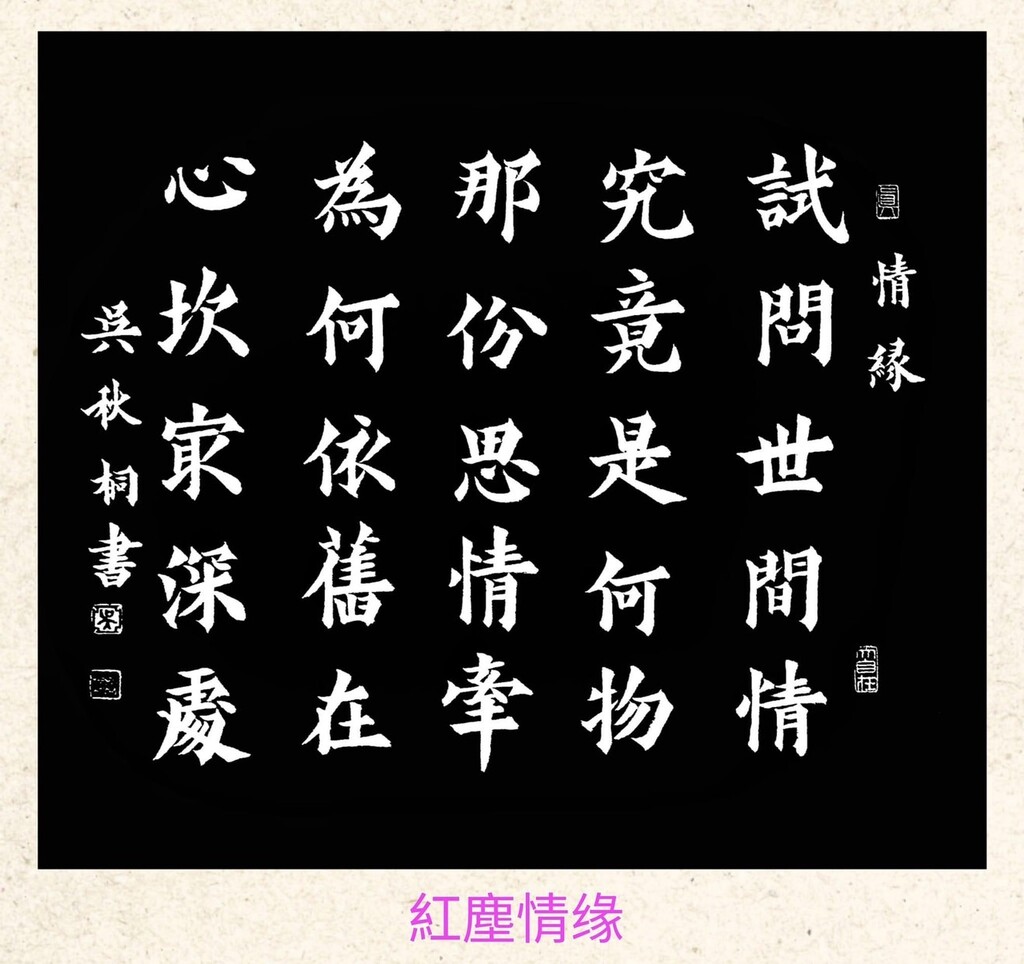 真
情緣
試問世間情
究竟是何物
那份思情牽
為何依舊在
心坎㝡深處
吳秋桐書
吳
大自在
紅塵情缘